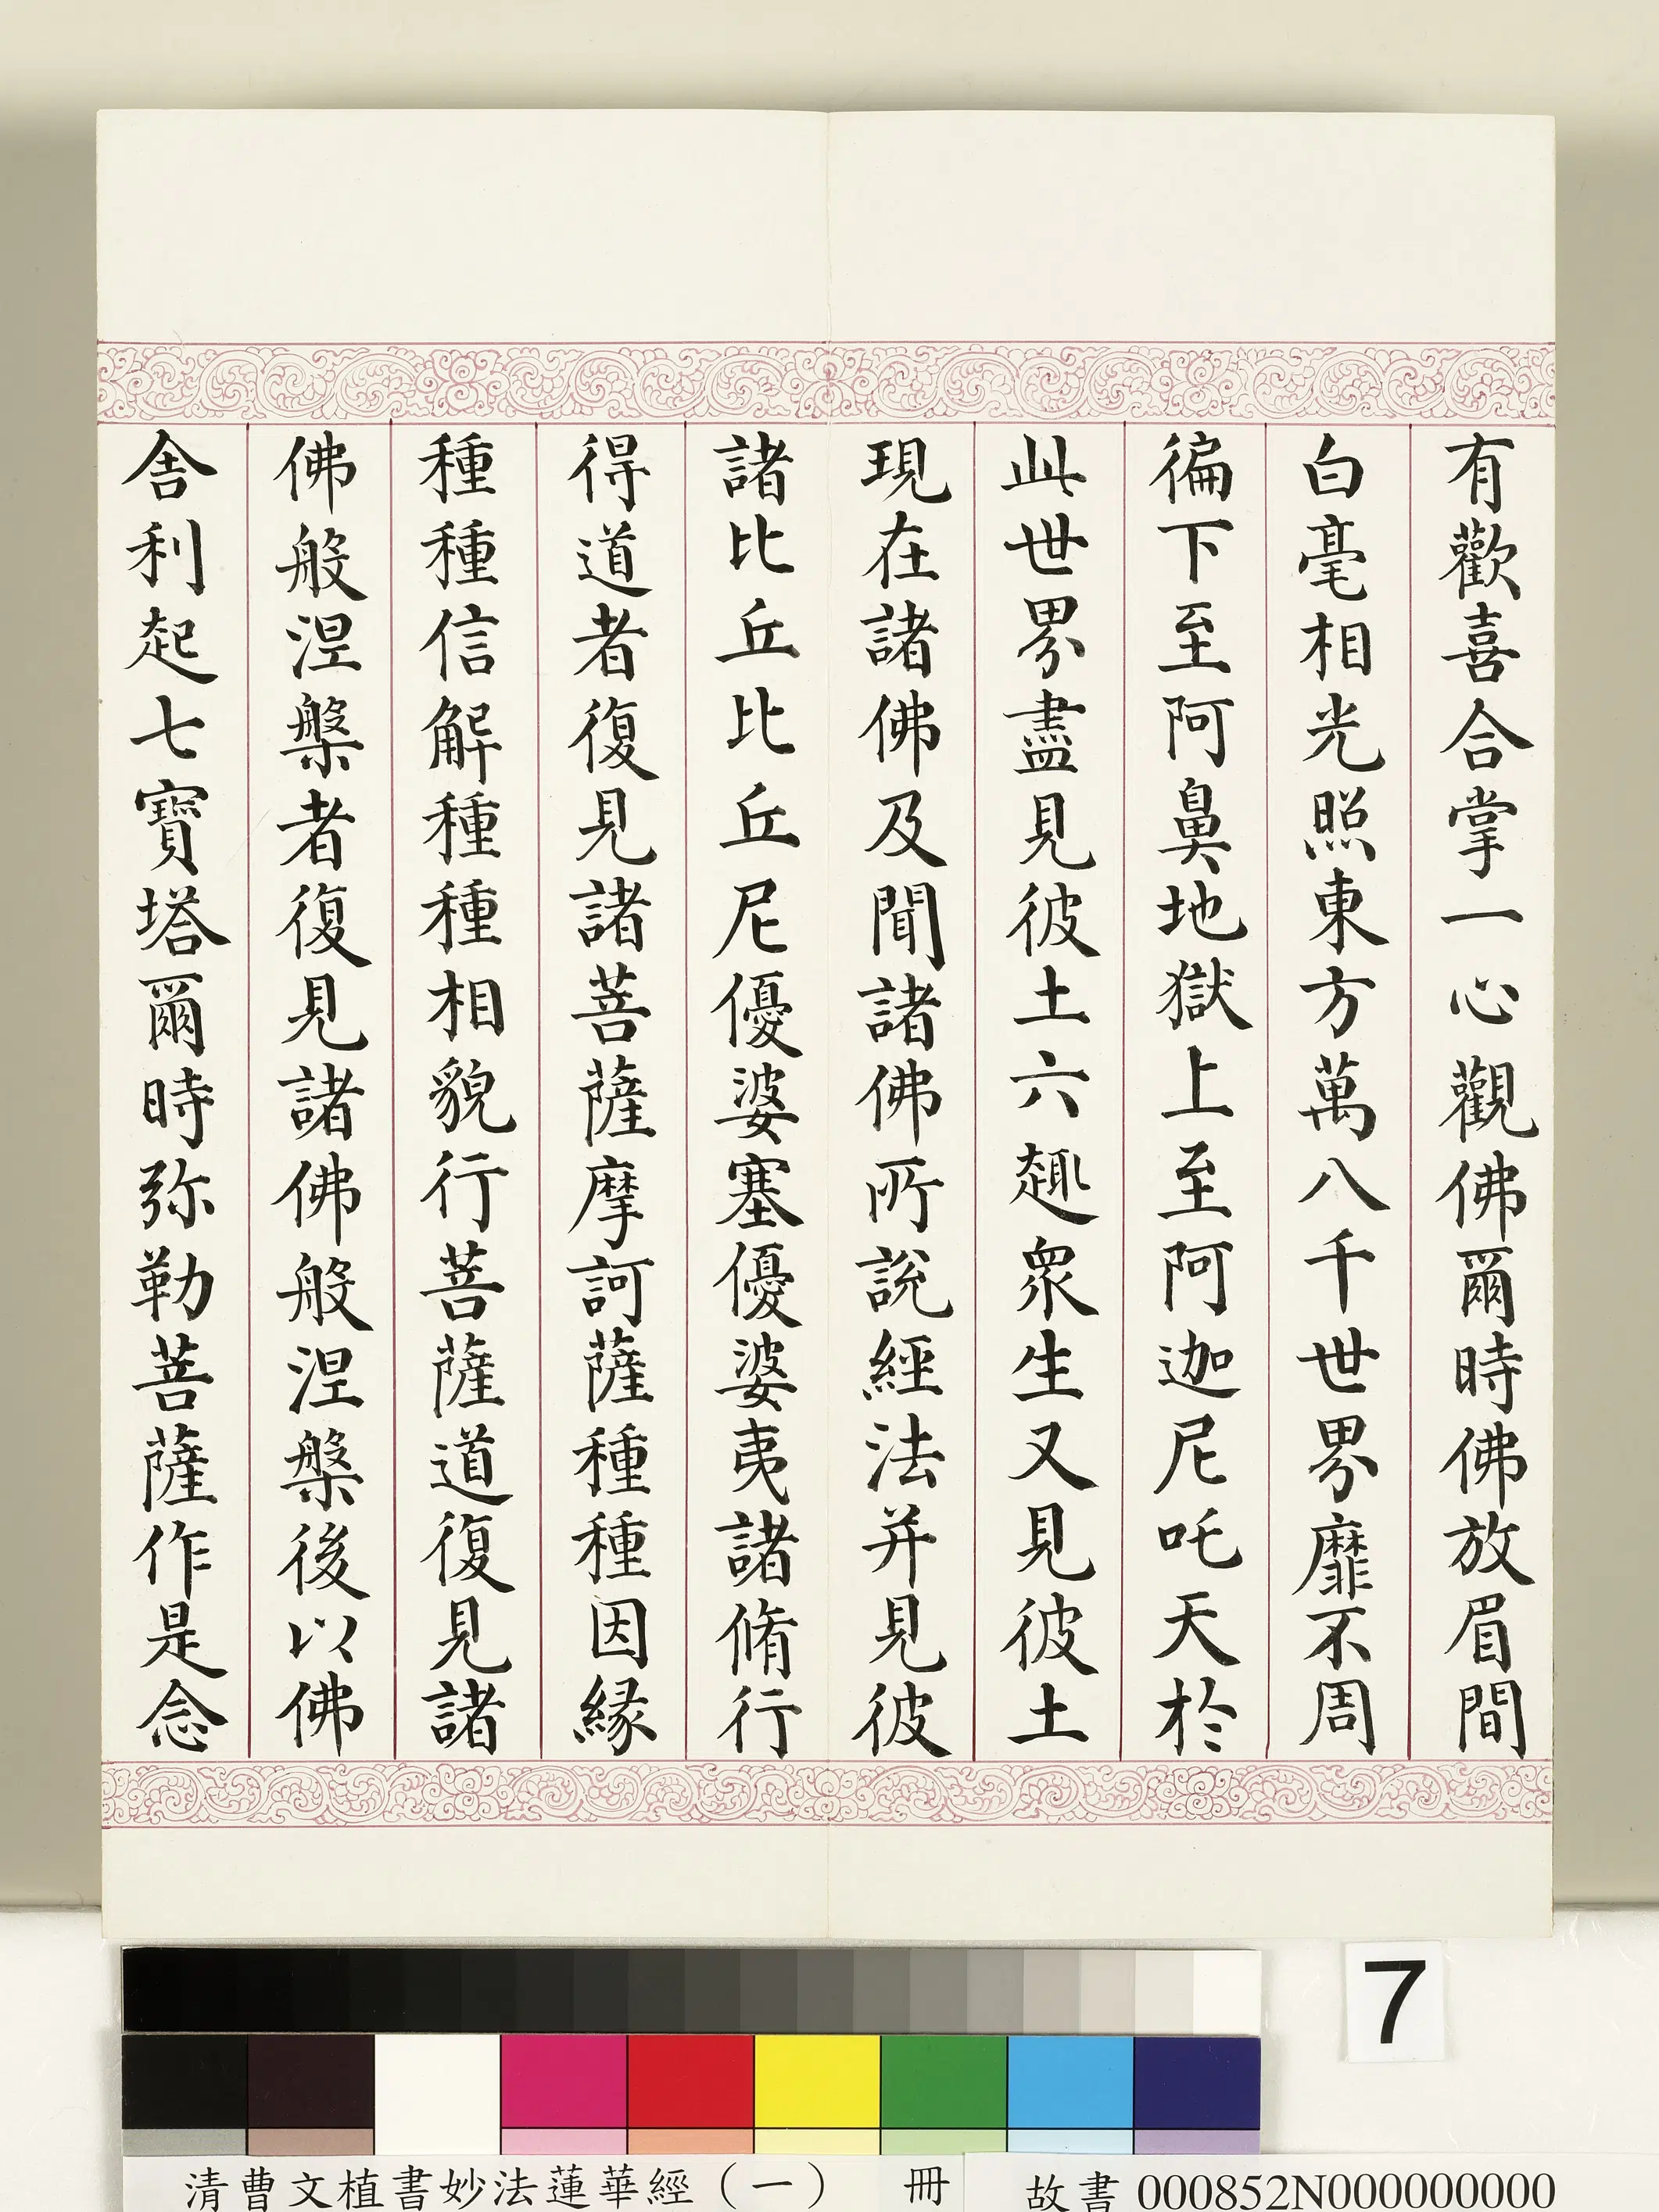 有歡喜合掌一心觀佛爾時佛放眉間
白毫相光照東方萬八千世界靡不周
徧下至阿鼻地獄上至阿迦尼吒天於
此世界盡見彼土六趣眾生又見彼土
現在諸佛及聞諸佛所說經法并見彼
諸比丘比丘尼優婆塞優婆夷諸脩行
得道者復見諸菩薩摩訶薩種種因緣
種種信解種種相貌行菩薩道復見諸
佛般涅槃者復見諸佛般涅槃後以佛
舍利起七寶塔爾時弥勒菩薩作是念
7
清曹文植書妙法蓮華經（一） 冊 故書000852N000000000